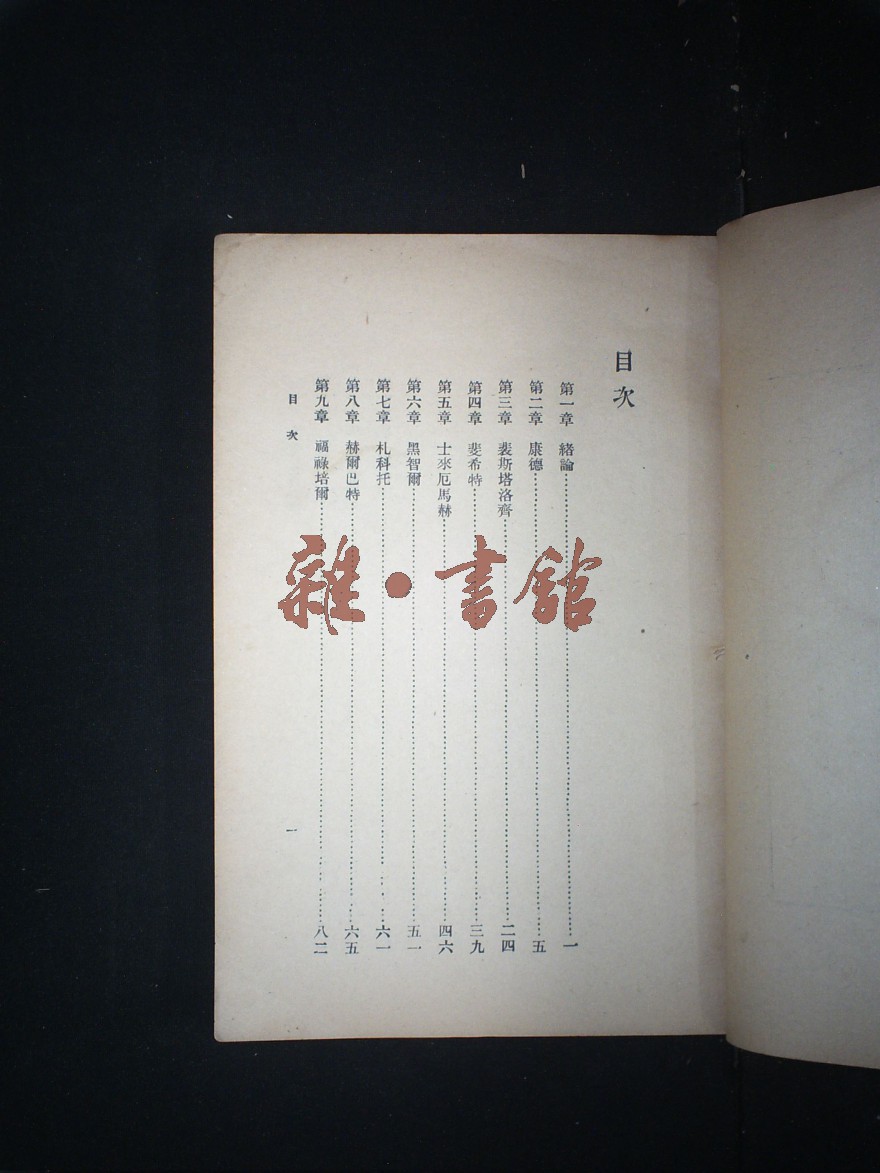 目次
第一章　緒論……一
第二章　康德……五
第三章　裴斯塔洛齊……二四
第四章　斐希特……三九
第五章　士來厄馬赫……四六
第六章　黑智爾……五一
第七章　札科托……六一
第八章　赫爾巴特……六五
第九章　福祿培爾……八二
目次
一
雜·書館